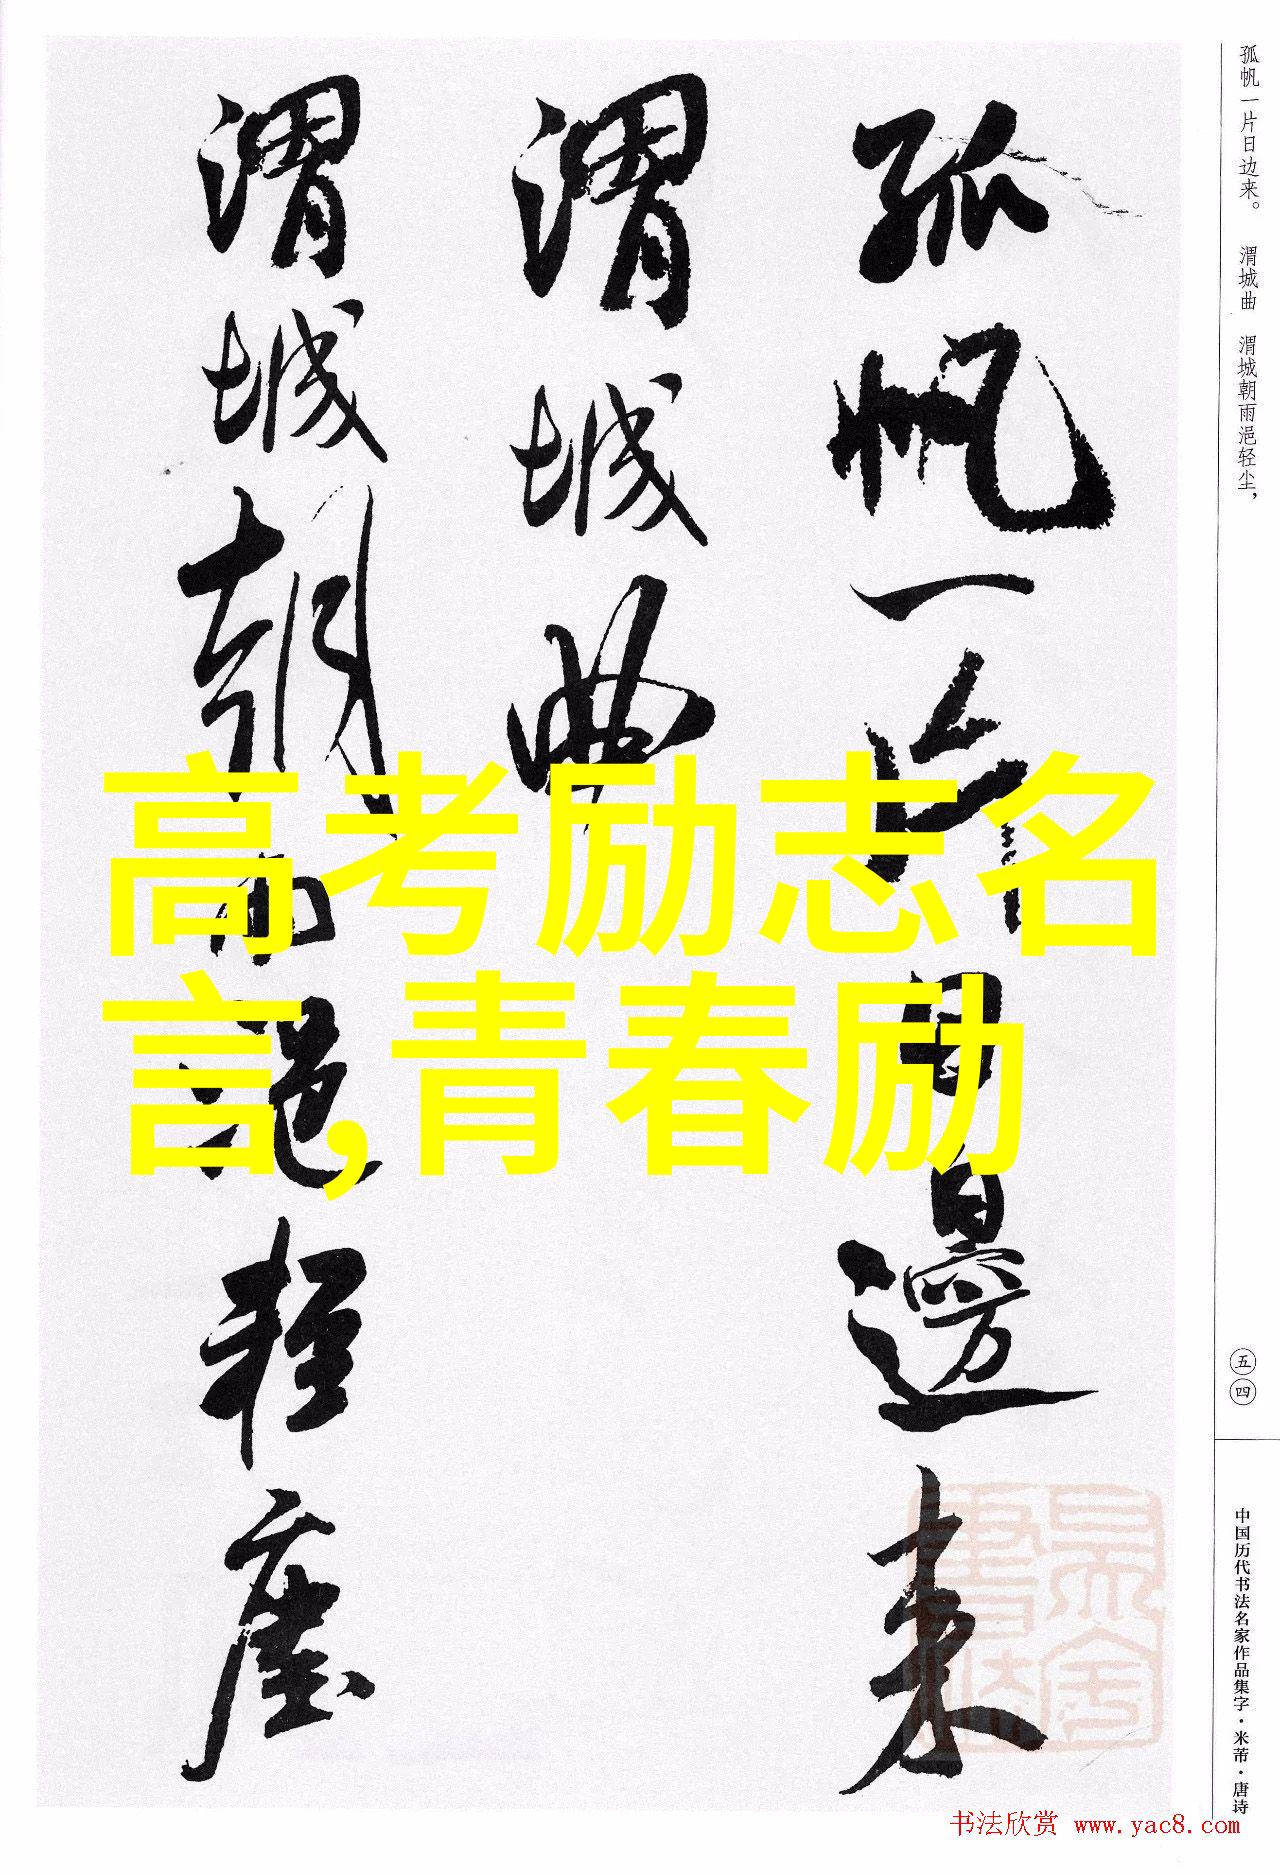 孤帆一片日边来。 渭城曲 渭城朝雨浥轻尘，
五四
中国历代书法名家作品集字·米芾·唐诗
孤帆一片日邊来
渭城曲
渭城朝雨浥轻塵
高考励志名
言,青春励
书法欣赏 www.yac8.com